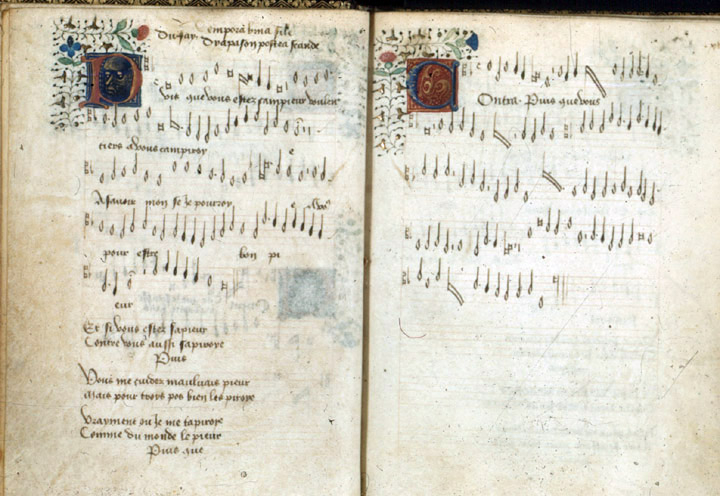 Dufay. Tempora bina sile
Dyapason postea scande
Puis que vous estez campieur voulen
tiers a vous campiroy
A savoir mon se je pourroy
pour estre bon pi
eur
Et si vous estez sapieur
Contre vous aussi sapiroye
Puis
Vous me cuidez mauluais pieur
Mais pour troys pos bien les piroye
Vrayment ou je me tapiroye
Comme du monde le pieur
Puis que
Contra. Puis que vous